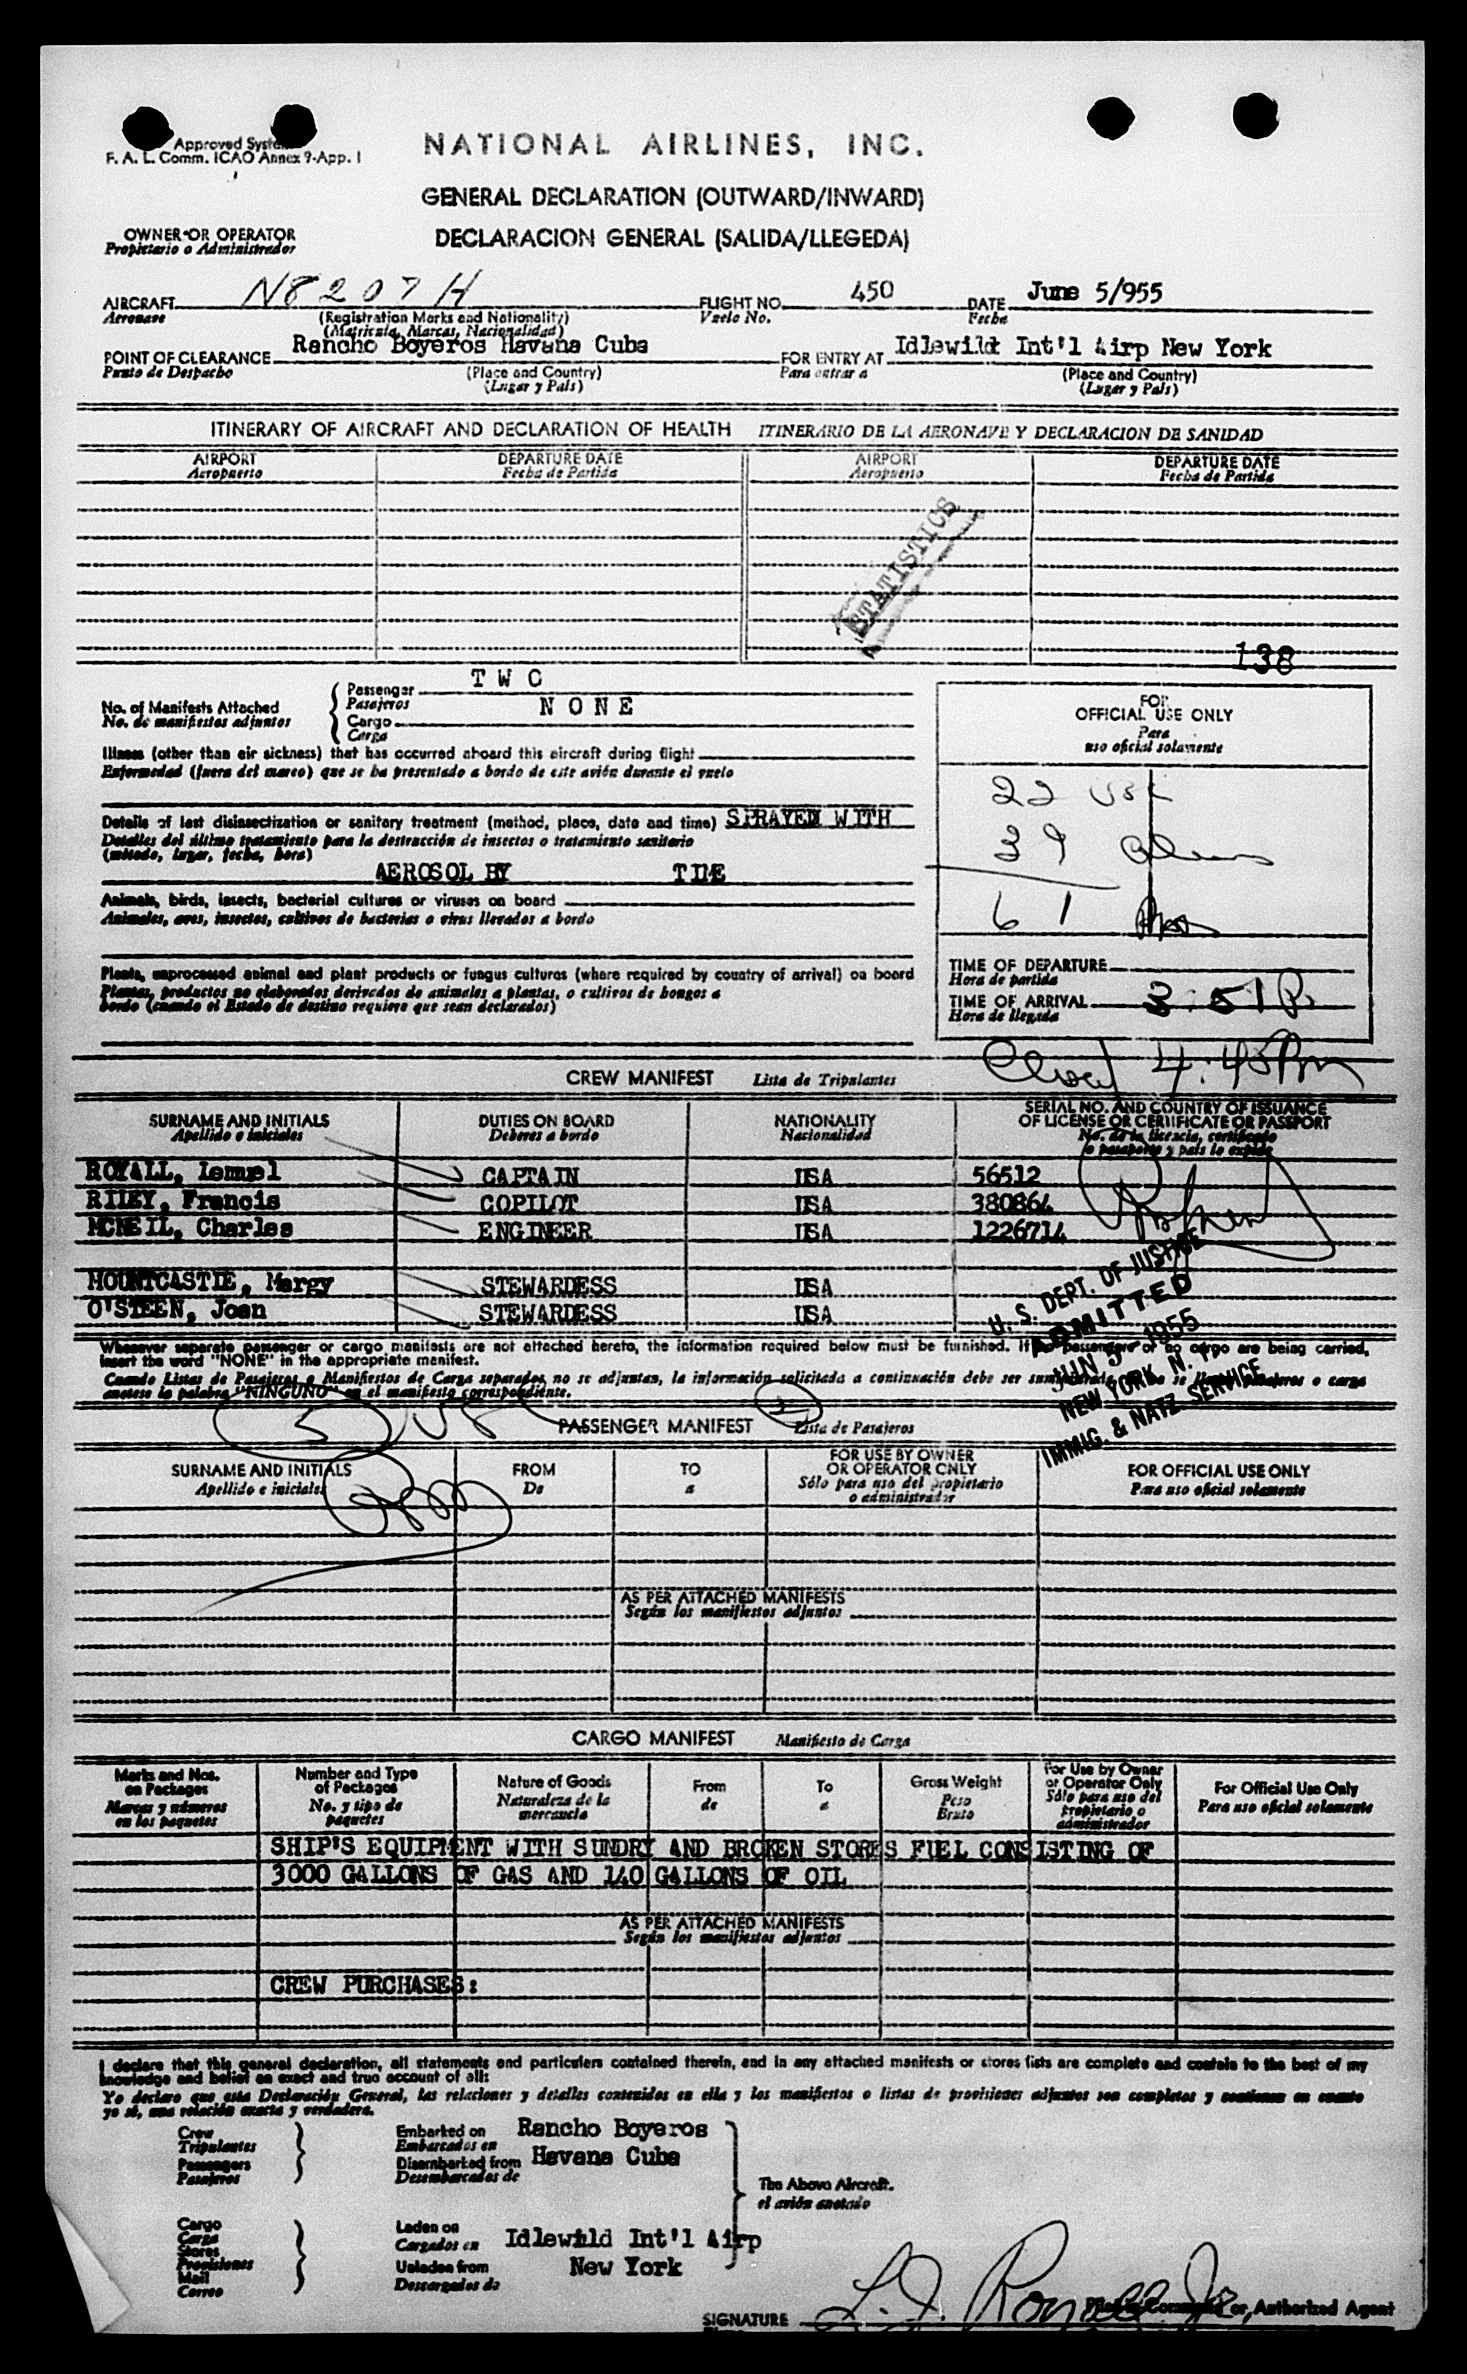 Approved System
F. A. L. Comm. ICAO Annex 9-App. 1
NATIONAL AIRLINES, INC.
GENERAL DECLARATION (OUTWARD/INWARD)
DECLARACION GENERAL (SALIDA/LLEGEDA)
OWNER OR OPERATOR
Propietario o Administrador
AIRCRAFT N8207H FLIGHT NO. 450 DATE June 5/955
Aeronave (Registration Marks and Nationality) Vuelo No. Fecha
(Matricula, Marcas, Nacionalidad)
POINT OF CLEARANCE Rancho Boyeros Havana Cuba FOR ENTRY AT Idlewild Int'l Airp New York
Punto de Despacho (Place and Country) Para entrar a (Place and Country)
(Lugar y Pais) (Lugar y Pais)
ITINERARY OF AIRCRAFT AND DECLARATION OF HEALTH ITINERARIO DE LA AERONAVE Y DECLARACION DE SANIDAD
AIRPORT DEPARTURE DATE AIRPORT DEPARTURE DATE
Aeropuerto Fecha de Partida Aeropuerto Fecha de Partida
STATISTICS
138
No. of Manifests Attached
No. de manifiestos adjuntos
Passenger T W O
Pasajeros
Cargo N O N E
Carga
FOR
OFFICIAL USE ONLY
Para
uso oficial solamente
22 USC
39 aliens
61
Illness (other than air sickness) that has occurred aboard this aircraft during flight
Enfermedad (fuera del mareo) que se ha presentado a bordo de este avión durante el vuelo
Details of last disinsectization or sanitary treatment (method, place, date and time) SPRAYED WITH
Detalles del último tratamiento para la destrucción de insectos o tratamiento sanitario
(método, lugar, fecha, hora)
AEROSOL BY TIME
Animals, birds, insects, bacterial cultures or viruses on board
Animales, aves, insectos, cultivos de bacterias o virus llevados a bordo
Plants, unprocessed animal and plant products or fungus cultures (where required by country of arrival) on board
Plantas, productos no elaborados derivados de animales a plantas, o cultivos de hongos a
bordo (cuando el Estado de destino requiere que sean declarados)
TIME OF DEPARTURE
Hora de partida
TIME OF ARRIVAL 3:51 P.
Hora de llegada
4:45 Pm
CREW MANIFEST Lista de Tripulantes
SURNAME AND INITIALS DUTIES ON BOARD NATIONALITY SERIAL NO. AND COUNTRY OF ISSUANCE
OF LICENSE OR CERTIFICATE OR PASSPORT
Apellido e iniciales Deberes a bordo Nacionalidad No. de la licencia, certificado
o pasaporte y pais lo expide
ROYALL, Lemuel CAPTAIN USA 56512
RILEY, Francis COPILOT USA 380864
MCNEIL, Charles ENGINEER USA 1226714
MOUNTCASTLE, Margy STEWARDESS USA
O'STEEN, Joan STEWARDESS USA
U. S. DEPT. OF JUSTICE
ADMITTED
JUN 5 1955
NEW YORK, N. Y.
IMMIG. & NATZ SERVICE
Whenever separate passenger or cargo manifests are not attached hereto, the information required below must be furnished. If no passengers or no cargo are being carried,
insert the word "NONE" in the appropriate manifest.
Cuando Listas de Pasajeros o Manifiestos de Carga separados, no se adjuntan, la información solicitada a continuación debe ser suministrada. no se llevan pasajeros o carga
anotese la palabra "NINGUNO" en el manifiesto correspondiente.
5 USC
2
PASSENGER MANIFEST Lista de Pasajeros
SURNAME AND INITIALS FROM TO FOR USE BY OWNER
OR OPERATOR ONLY FOR OFFICIAL USE ONLY
Apellido e iniciales De a Sólo para uso del propietario
o administrador Para uso oficial solamente
AS PER ATTACHED MANIFESTS
Según los manifiestos adjuntos
CARGO MANIFEST Manifiesto de Carga
Marks and Nos.
on Packages
Marcas y números
en los paquetes
Number and Type
of Packages
No. y tipo de
paquetes
Nature of Goods
Naturaleza de la
mercancia
From
de
To
a
Gross Weight
Peso
Bruto
For Use by Owner
or Operator Only
Sólo para uso del
propietario o
administrador
For Official Use Only
Para uso oficial solamente
SHIP'S EQUIPMENT WITH SUNDRY AND BROKEN STORES FUEL CONSISTING OF
3000 GALLONS OF GAS AND 140 GALLONS OF OIL
AS PER ATTACHED MANIFESTS
Según los manifiestos adjuntos
CREW PURCHASES:
I declare that this general declaration, all statements and particulars contained therein, and in any attached manifests or stores lists are complete and contain to the best of my
knowledge and belief an exact and true account of all:
Yo declaro que esta Declaración General, las relaciones y detalles contenidos en ella y los manifiestos o listas de provisiones adjuntos son completos y contienen en cuanto
yo sé, una relación exacta y verdadera.
Crew
Tripulantes
Passengers
Pasajeros
Embarked on Rancho Boyeros
Embarcados en
Disembarked from Havana Cuba
Desembarcados de
The Above Aircraft.
el avión anotado
Cargo
Carga
Stores
Provisiones
Mail
Correo
Laden on Idlewild Int'l Airp
Cargados en
Unladen from New York
Descargados de
SIGNATURE L. J. Royall Jr.
Pilot in Command or Authorized Agent